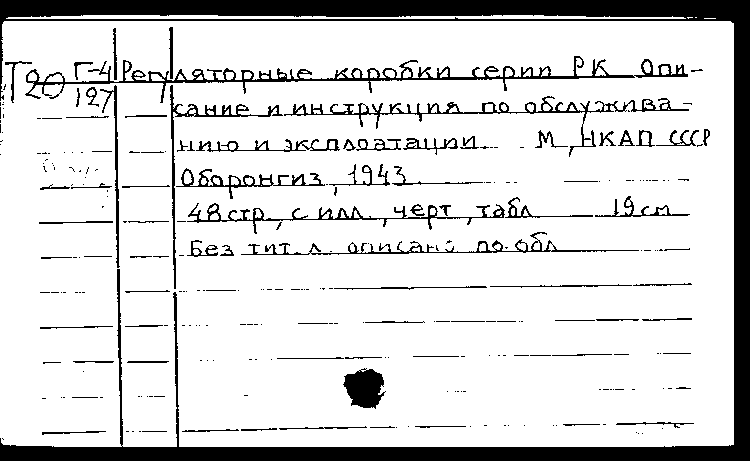 Т20 Г-4 Регуляторные коробки серии РК Опи-
127 сание и инструкция по обслужива-
нию и эксплоатации М, НКАП СССР
Оборонгиз, 1943
48 стр, с илл, черт, табл 19 см
Без тит. л. описано по обл